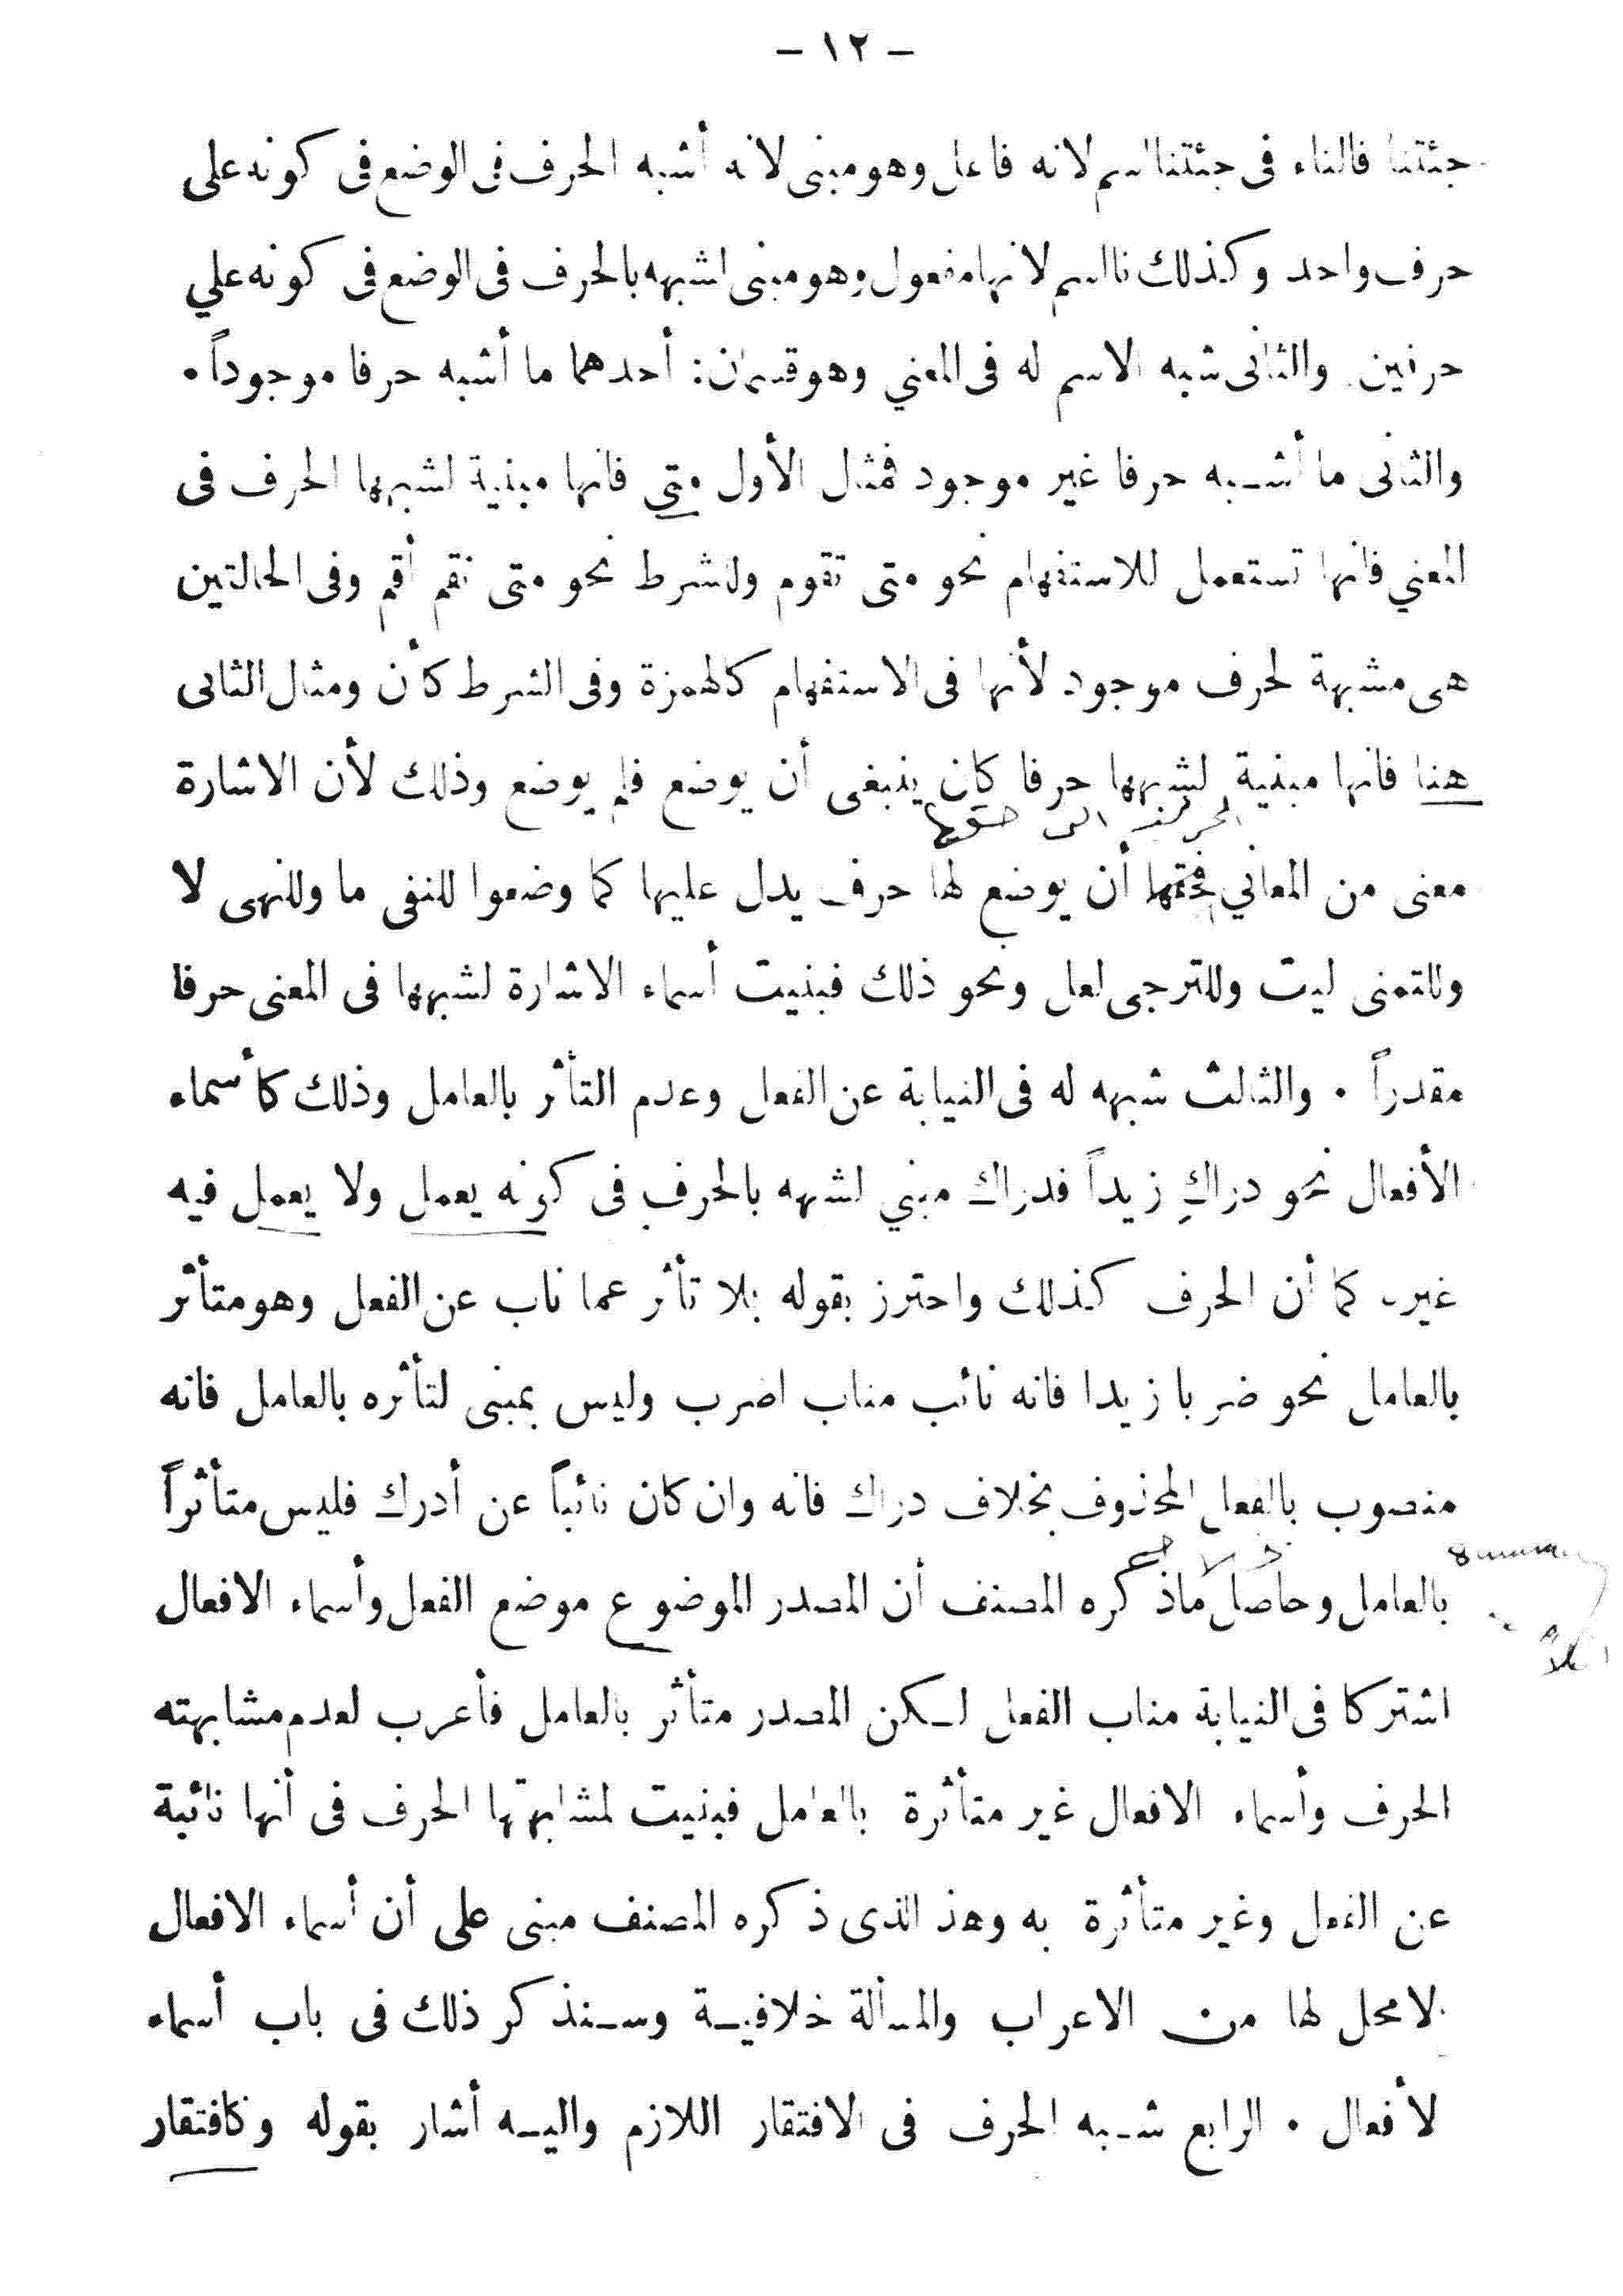 — ١٢ —
جئتنا فالتاء فى جئتنا اسم لانه فاعل وهو مبنى لانه أشبه الحرف فى الوضع فى كونه على
حرف واحد وكذلك نا اسم لانها مفعول وهو مبنى لشبهه بالحرف فى الوضع فى كونه علي
حرفين والثانى شبه الاسم له فى المعني وهو قسمان: أحدهما ما أشبه حرفا موجوداً .
والثانى ما أشبه حرفا غير موجود فمثال الأول متى فانها مبنية لشبهها الحرف فى
المعني فانها تستعمل للاستفهام نحو متى تقوم وللشرط نحو متى تقم أقم وفى الحالتين
هى مشبهة لحرف موجود لأنها فى الاستفهام كالهمزة وفى الشرط كأن ومثال الثانى
هنا فانها مبنية لشبهها حرفا كان ينبغى أن يوضع فلم يوضع وذلك لأن الاشارة
معنى من المعاني فحقها أن يوضع لها حرف يدل عليها كما وضعوا للنفى ما وللنهى لا
وللتمنى ليت وللترجى لعل ونحو ذلك فبنيت أسماء الاشارة لشبهها فى المعنى حرفا
مقدراً . والثالث شبهه له فى النيابة عن الفعل وعدم التأثر بالعامل وذلك كأسماء
الأفعال نحو دراكِ زيداً فدراك مبني لشبهه بالحرف فى كونه يعمل ولا يعمل فيه
غيره كما أن الحرف كذلك واحترز بقوله بلا تأثر عما ناب عن الفعل وهو متأثر
بالعامل نحو ضربا زيدا فانه نائب مناب اضرب وليس بمبنى لتأثره بالعامل فانه
منصوب بالفعل المحذوف بخلاف دراك فانه وان كان نائباً عن أدرك فليس متأثراً
بالعامل وحاصل ماذكره المصنف أن المصدر الموضوع موضع الفعل وأسماء الافعال
اشتركا فى النيابة مناب الفعل لكن المصدر متأثر بالعامل فأعرب لعدم مشابهته
الحرف وأسماء الافعال غير متأثرة بالعامل فبنيت لمشابهتها الحرف فى أنها نائبة
عن الفعل وغير متأثرة به وهذ الذى ذكره المصنف مبنى على أن أسماء الافعال
لا محل لها من الاعراب والمسألة خلافية وسنذكر ذلك فى باب أسماء
لأفعال . الرابع شبه الحرف فى الافتقار اللازم واليه أشار بقوله وكافتقار